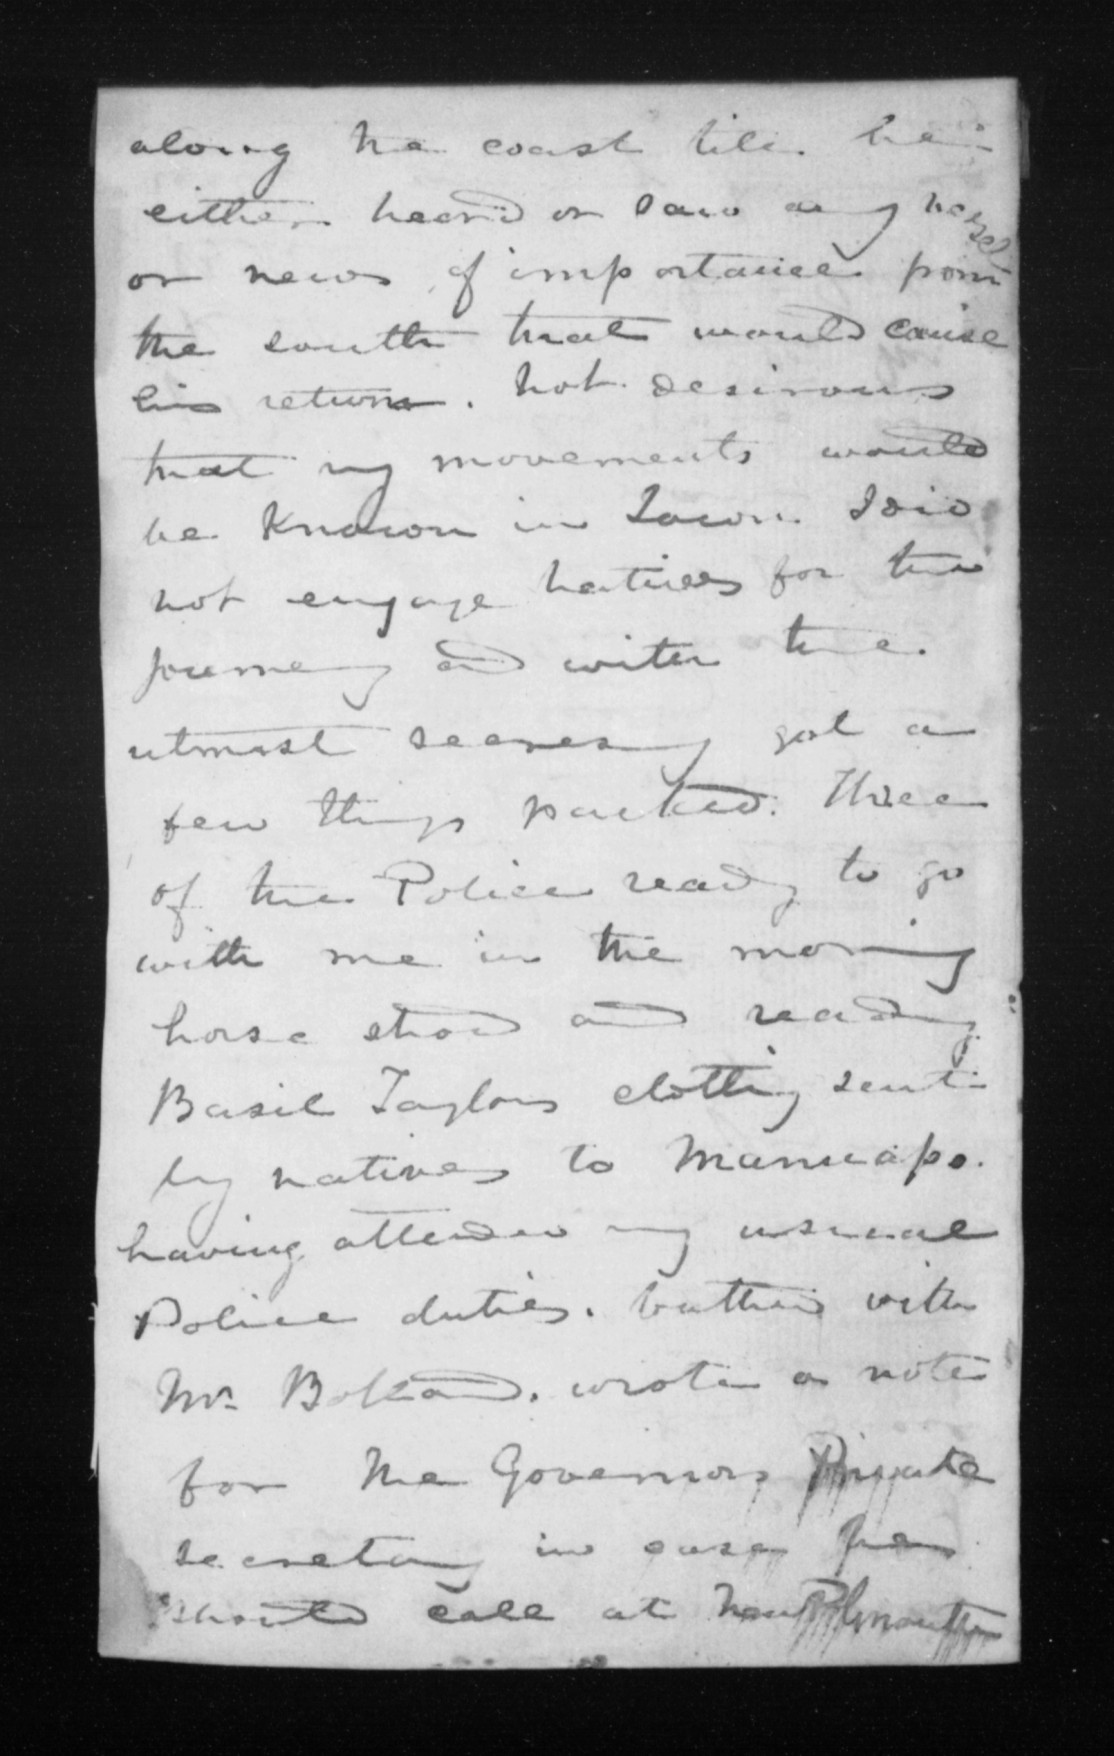 along the coast till he
either heard or saw any vessel
or news of importance from
the south that would cause
his return. Not desirous
that my movements would
be Known in Town. I did
not engage natives for the
journey and with the
utmost secresy got a
few things packed. Three
of the Police ready to go
with me in the morning
horse shod and ready
Basil Taylors clothing sent
by natives to Manuapo.
having attended my usual
Police duties. with
Mr. wrote a note
for the Governors Private
secretary in case he
should call at New Plymouth